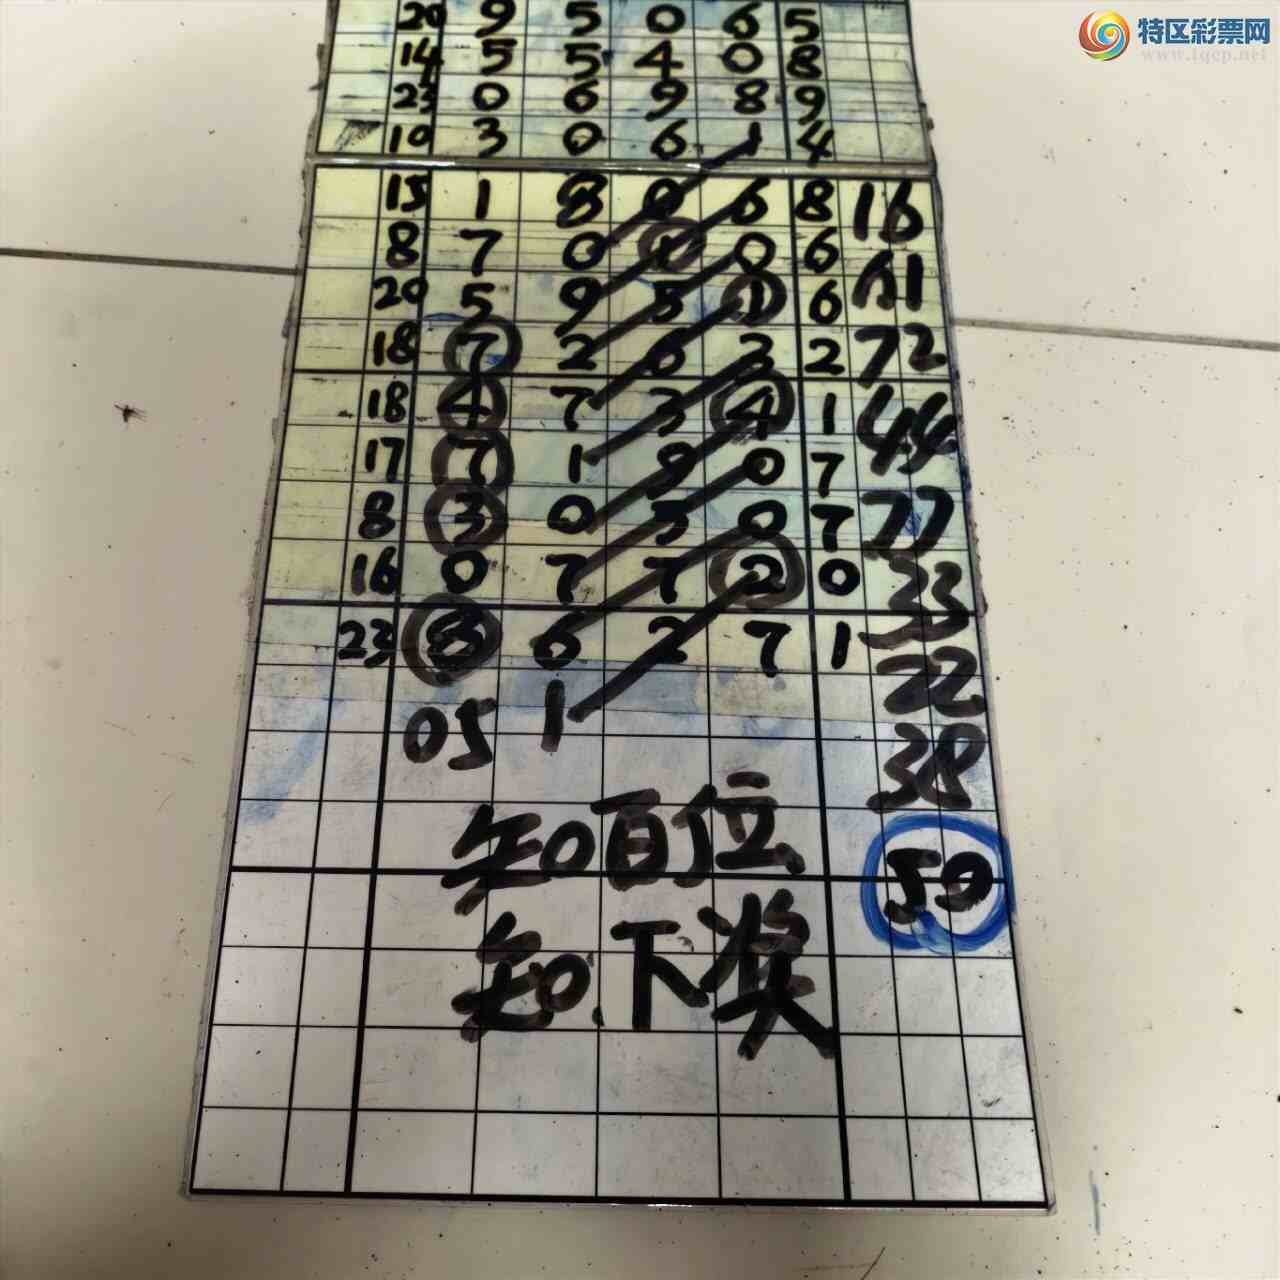 特区彩票网
www.tqcp.net
20 9 5 0 6 5
14 5 5 4 0 8
23 0 6 9 8 9
10 3 0 6 1 4
15 1 8 0 6 8 16
8 7 0 1 0 6 61
20 5 9 5 1 6
18 7 2 6 3 2 72
18 4 7 3 4 1 44
17 7 1 9 0 7
8 3 0 5 0 7 77
16 0 7 7 2 0 33
23 3 6 2 7 1 22
05 1 38
知百位 50
知下奖